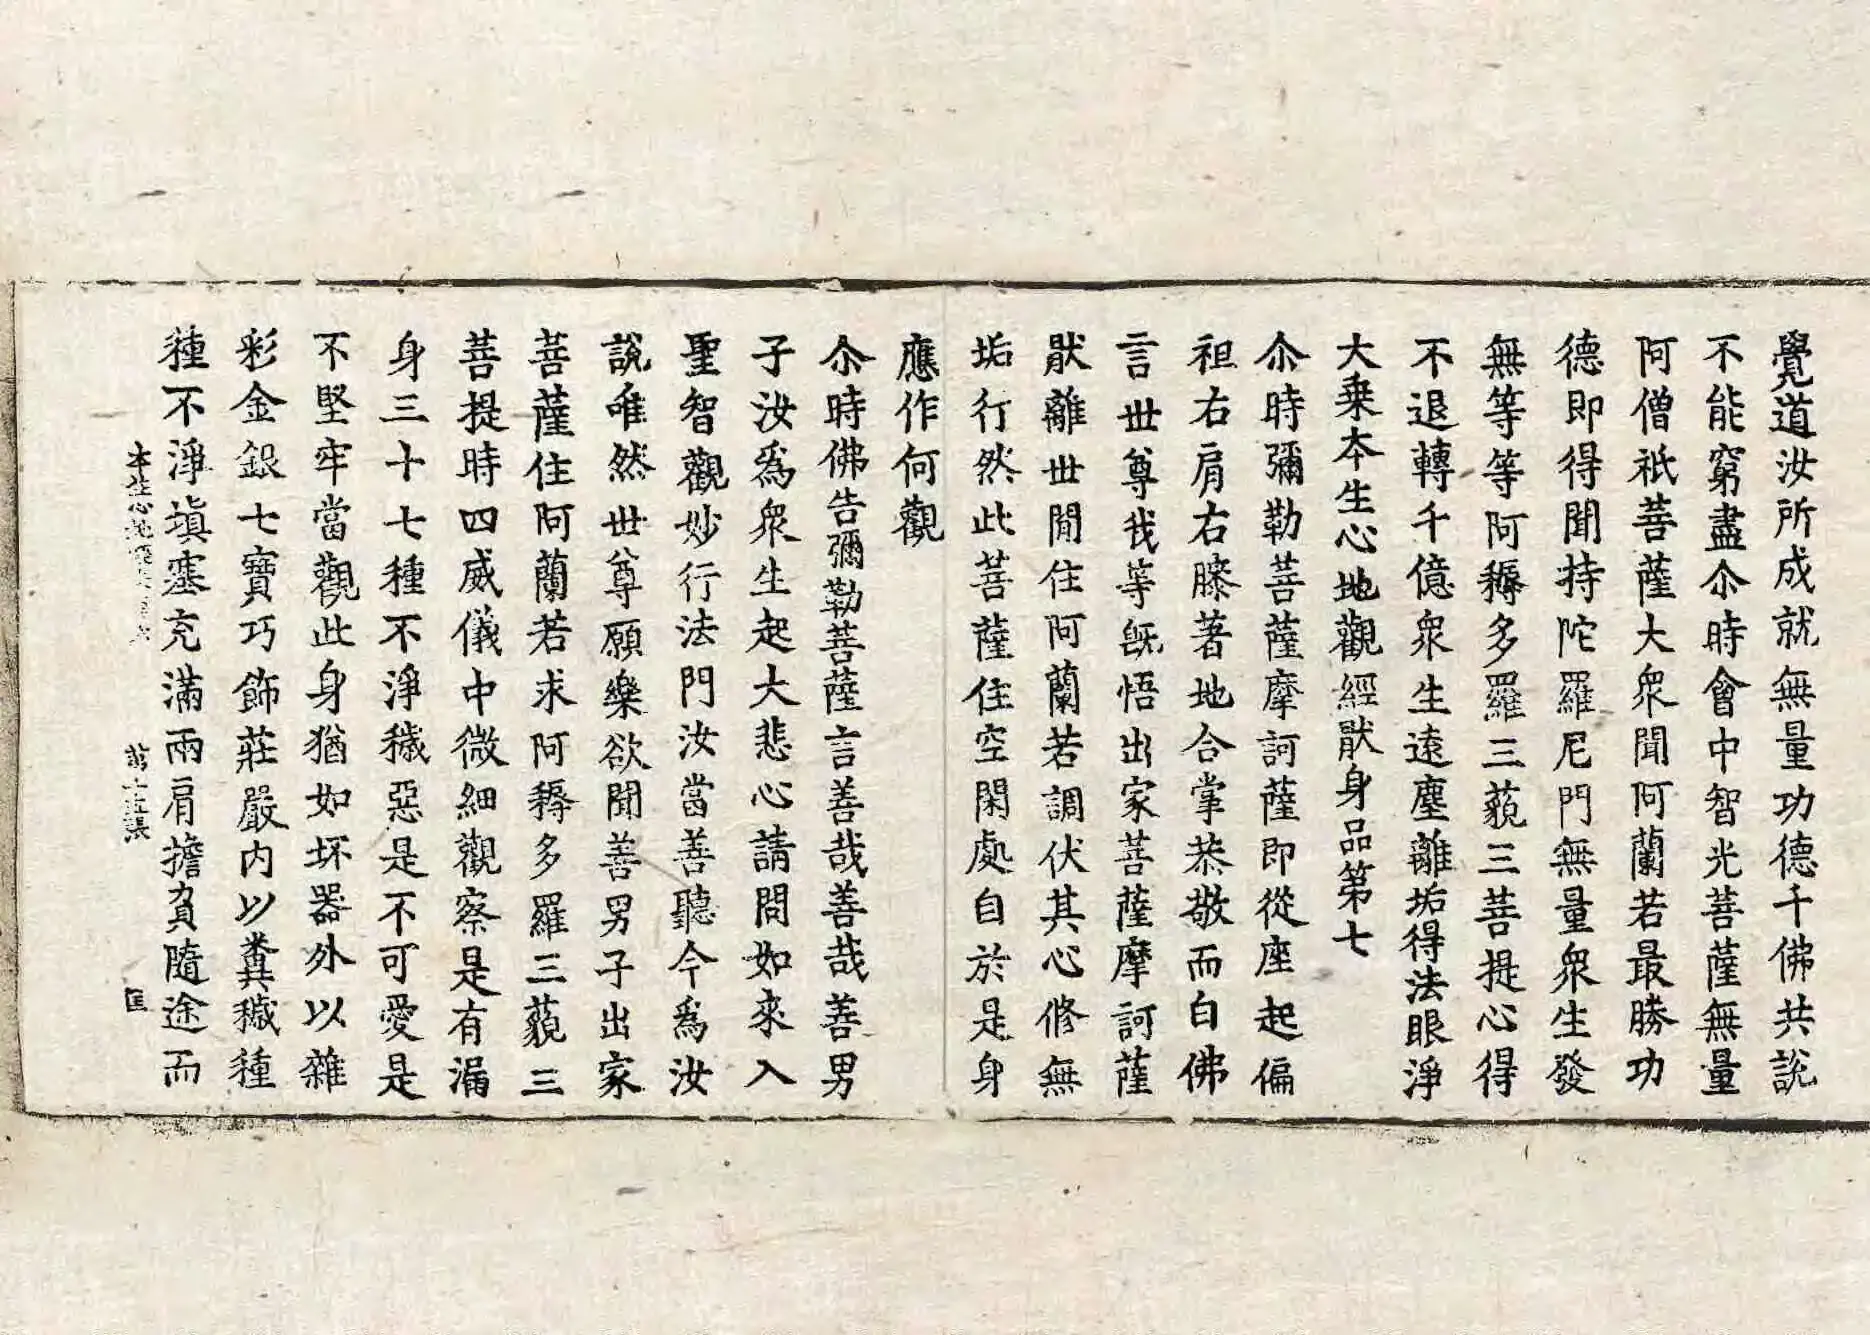 覺道汝所成就無量功德千佛共說
不能窮盡尒時會中智光菩薩無量
阿僧祇菩薩大衆聞阿蘭若最勝功
德即得聞持陀羅尼門無量衆生發
無等等阿耨多羅三藐三菩提心得
不退轉千億衆生遠塵離垢得法眼淨
大乗本生心地觀經猒身品第七
尒時彌勒菩薩摩訶薩即從座起偏
袒右肩右膝著地合掌恭敬而白佛
言世尊我等旣悟出家菩薩摩訶薩
猒離世閒住阿蘭若調伏其心修無
垢行然此菩薩住空閑處自於是身
應作何觀
尒時佛告彌勒菩薩言善哉善哉善男
子汝爲衆生起大悲心請問如來入
聖智觀妙行法門汝當善聽今爲汝
說唯然世尊願樂欲聞善男子出家
菩薩住阿蘭若求阿耨多羅三藐三
菩提時四威儀中微細觀察是有漏
身三十七種不淨穢惡是不可愛是
不堅牢當觀此身猶如坏器外以雜
彩金銀七寶巧飾莊嚴内以糞穢種
種不淨塡塞充滿兩肩擔負隨途而
本生心地觀經 第十五張 匡